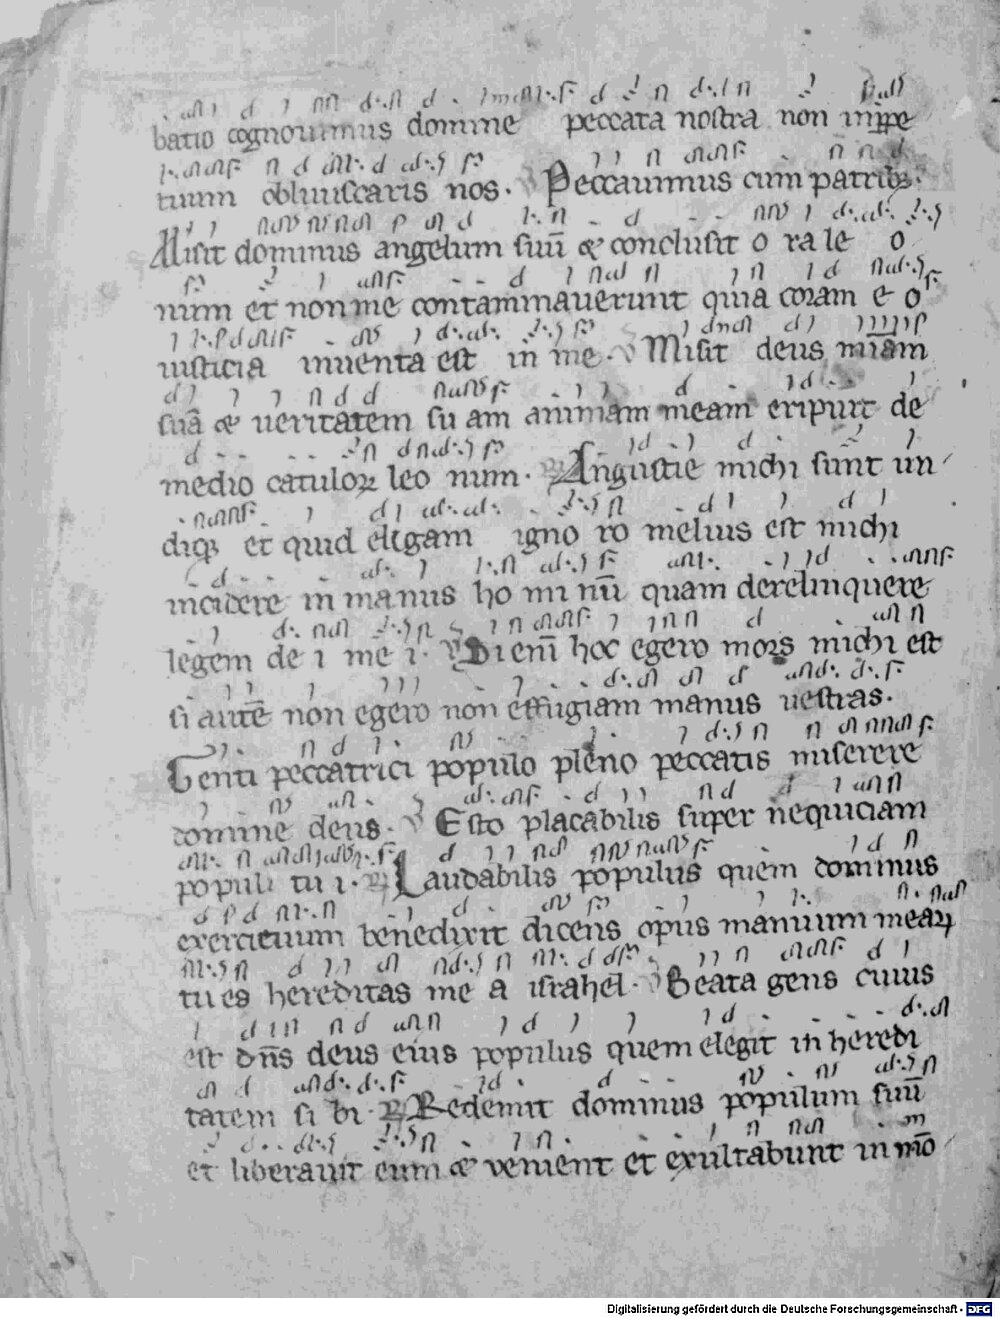 batio cognouimus domine peccata nostra non inppe
tuum obliuiscaris nos. V Peccauimus cum patribꝫ.
Misit dominus angelum suū & conclusit o ra le o
num et non me contaminauerunt quia coram e o
iusticia inuenta est in me. V Misit deus mīam
suā & ueritatem su am animam meam eripuit de
medio catuloꝝ leo num. R Angustie michi sunt un
diqꝫ et quid eligam igno ro melius est michi
incidere in manus ho mi nū quam derelinquere
legem de i me i. V Si enī hoc egero mors michi est
si autē non egero non effugiam manus uestras.
Genti peccatrici populo pleno peccatis miserere
domine deus. V Esto placabilis super nequiciam
populi tu i. R Laudabilis populus quem dominus
exercituum benedixit dicens opus manuum meaꝝ
tu es hereditas me a israhel. V Beata gens cuius
est dn̄s deus eius populus quem elegit in heredi
tatem si bi. R Redemit dominus populum suū
et liberauit eum & venient et exultabunt in mō
Digitalisierung gefördert durch die Deutsche Forschungsgemeinschaft - DFG